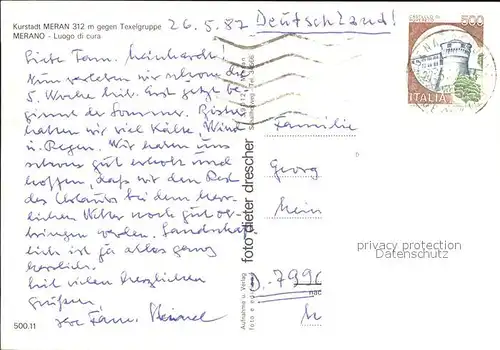 Kurstadt MERAN 312 m gegen Texelgruppe
MERANO - Luogo di cura
26.5.87 Deutschland!
Liebe Fam. Meinhardt!
Nun verleben wir schon die
5. Woche hier. Erst jetzt be-
ginnt der Sommer. Bisher
hatten wir viel Kälte, Wind
u. Regen. Wir haben uns
schon gut erholt und
hoffen, daß wir den Rest
des Urlaubs bei dem herr-
lichen Wetter noch gut ver-
bringen werden. Landschaft-
lich ist ja alles ganz
herrlich.
Mit vielen herzlichen
Grüßen,
Fam.
500.11
foto dieter drescher
Aufnahme u. Verlag
500
ITALIA
Familie
Georg
Mein
D. 799
privacy protection
Datenschutz